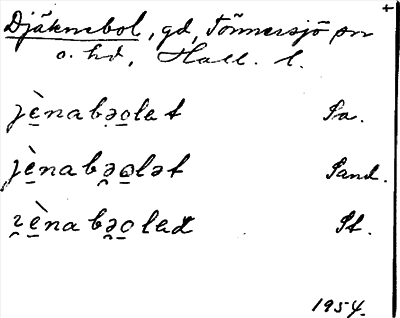 Djäknebol, gd, Tönnersjö sn +
o. hd, Hall. l.
jè̱nabə̯o̱let Sa.
jè̱nabə̯o̱lət Sand.
ʐè̱nabə̯o̱led St.
1954.